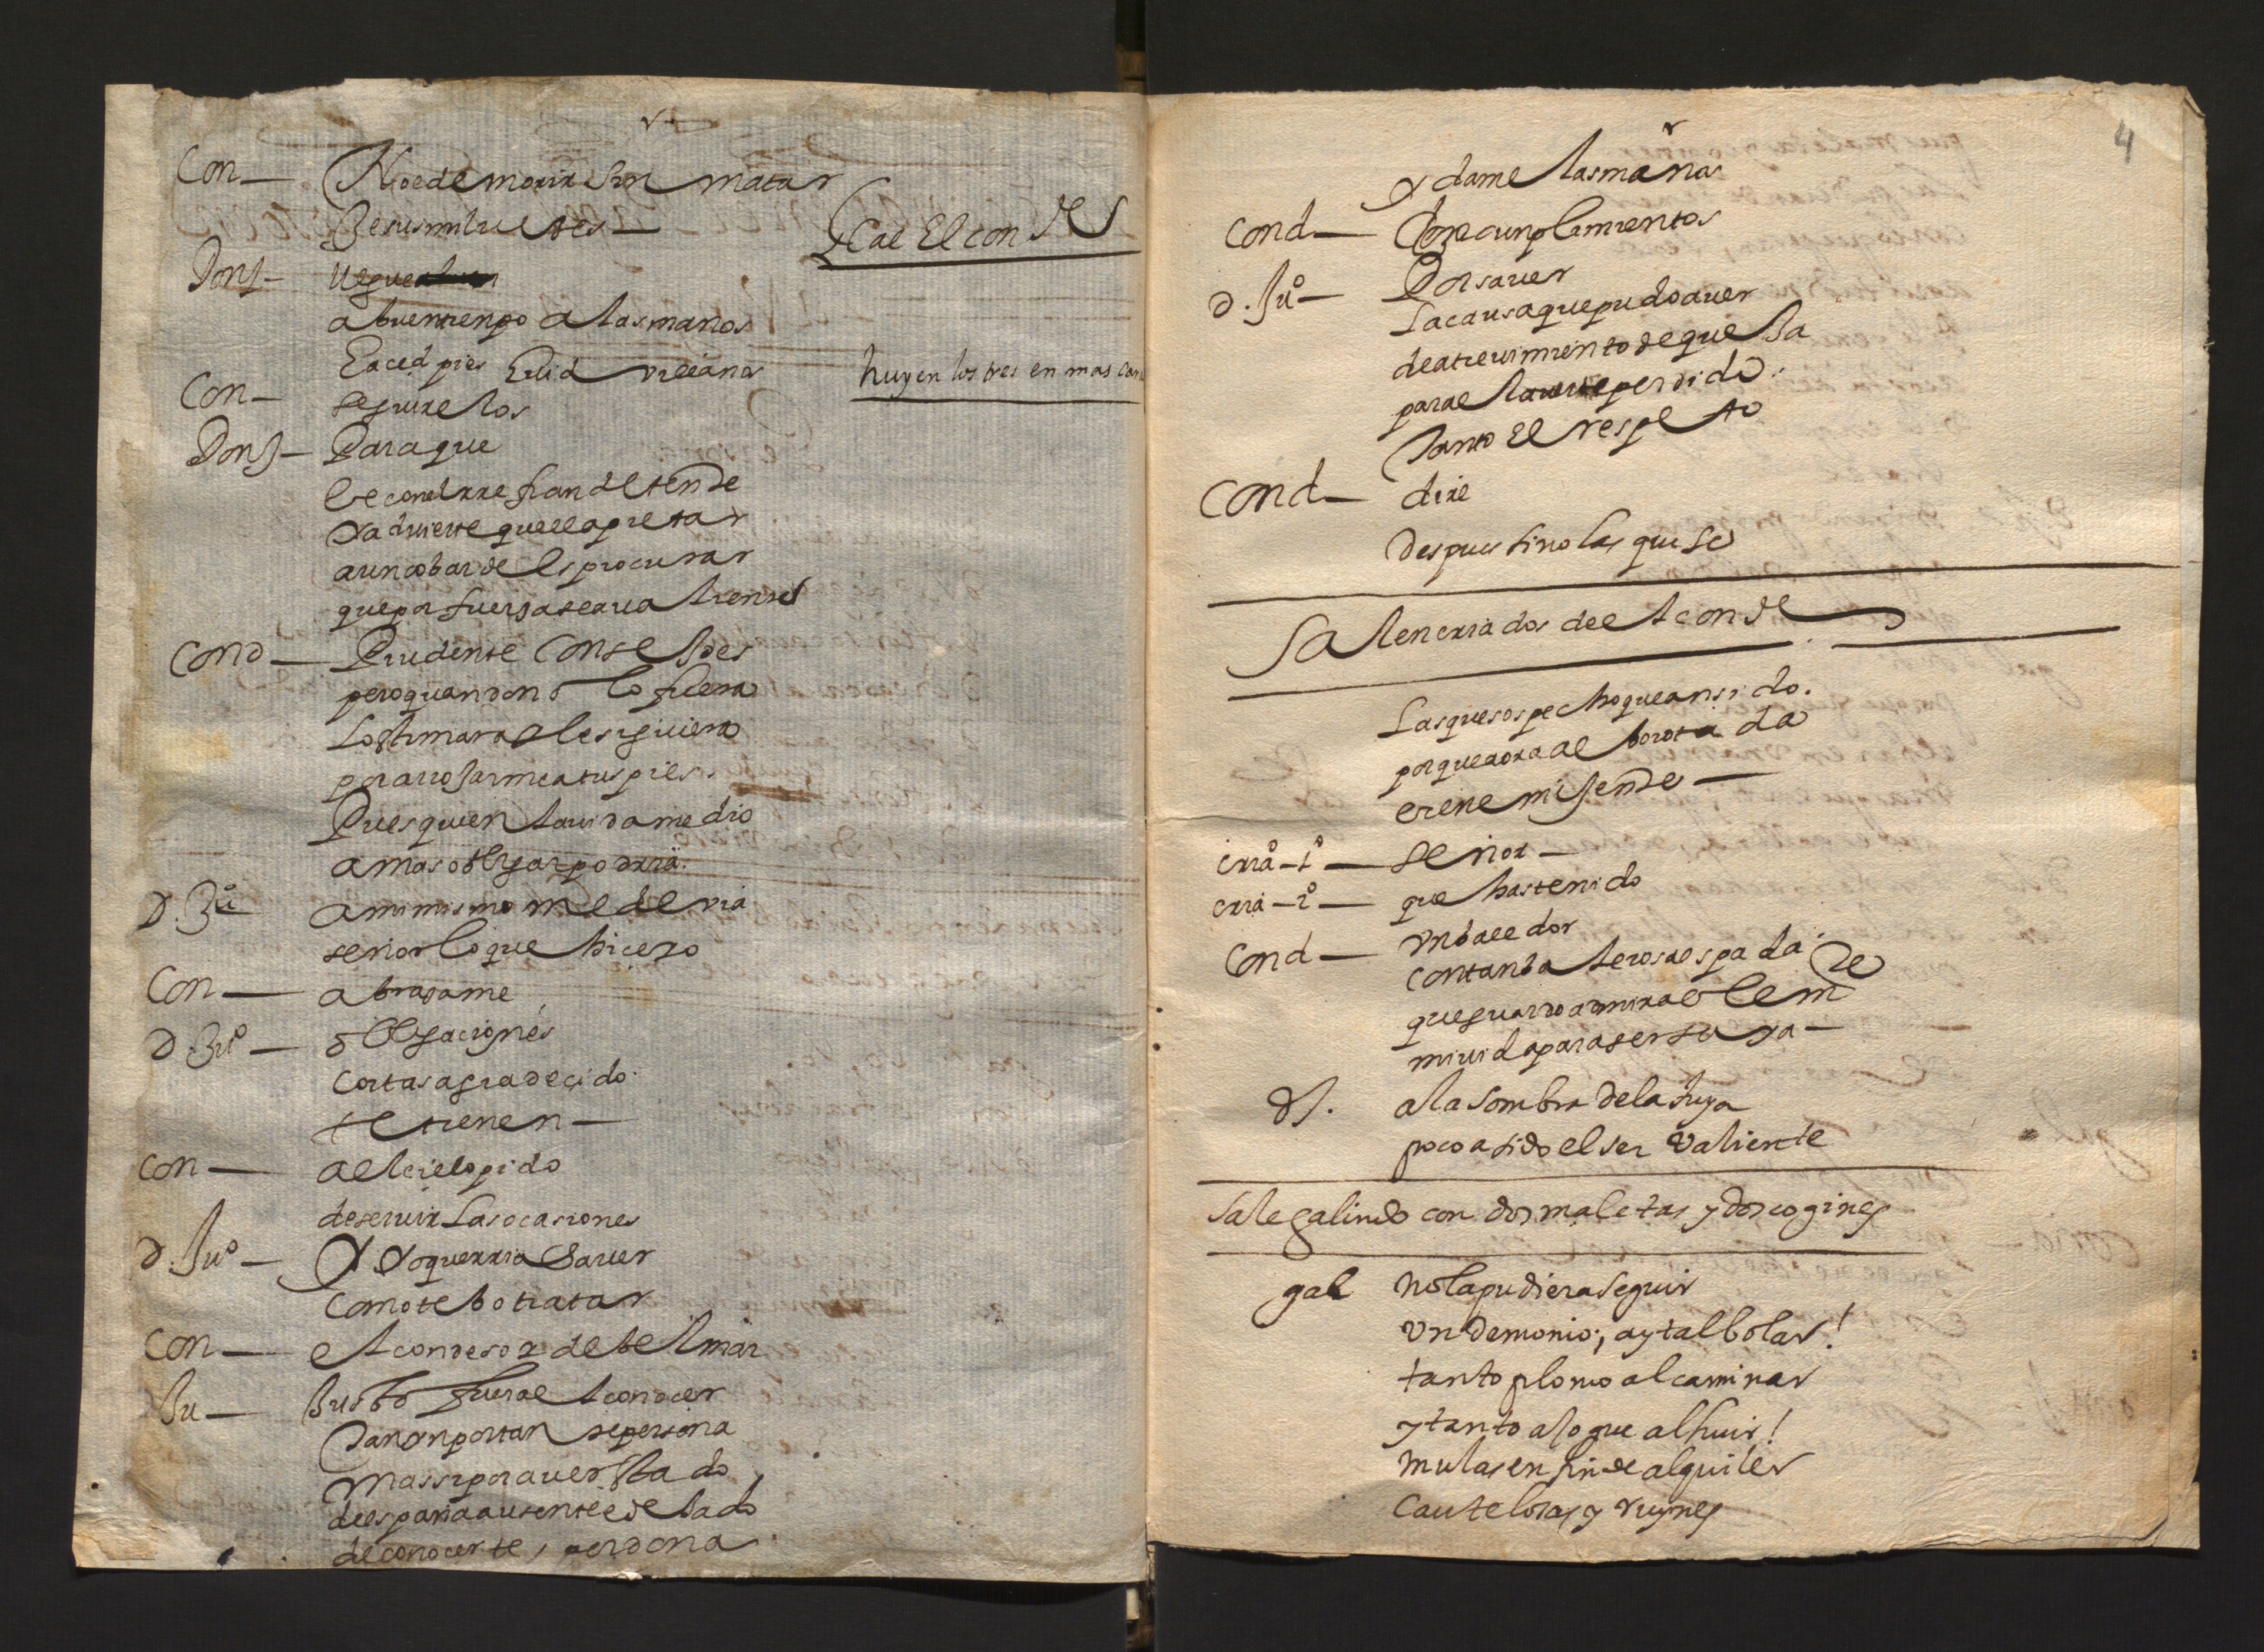 Con— No e de morir sin matar
Jesus mil veces—
Cae El conde
Don J— llegue
a buen tienpo a las manos
Haced pies huid villanos
huyen los tres en mas cara
Con— seguirelos
Don J— Para que
el correr se han defende
y advierte que el apretar
a un cobarde es procurar
que por fuerza sea valiente
Cond— Prudente consejo es
pero quando no lo fuera
Lastimara el seguirera
por arrojarme a tus pies.
Pues quien la vida me dio
a mas obligar podria.
D. Ju— a mi mismo me devia
señor lo que hice yo
Con— abraçame
D. Juº— obligaciones
cortas agradecido.
te tienen—
Con— al cielo pido
de servir Las ocasiones
D. Juº— Y yo querria saver
como te e de tratar
Con— el conde soy de belmar
Ju— Justo fuera el conocer
tan ynportante persona
mas si por aver estado
de españa ausente e dejado
de conocerte, perdona
4
y dame las manos
Cond— deja cunplimientos
D. Juº— Por saver
La causa que pudo aver
de atrevimiento de que ha
para el averte perdido.
tanto El respeto
Cond— dire
despues sino las que se
Salen criados del conde
Las que sospecho que an sido.
porque aora alborotada
viene mi jente—
criaº—1º— señor—
cria—2º— que has tenido
Cond— Un baledor
con tan balerosa espada
que guardo admirable
mi vida para ser suya—
DJ. a la sombra de la tuya
poco a sido el ser valiente
Sale galindo con dos maletas y dos cogines
gal no la pudiera seguir
Un demonio; ay tal bolar!
tanto plomo al caminar
y tanto azogue al huir!
mulas en fin de alquiler
Cautelosas y ruynes